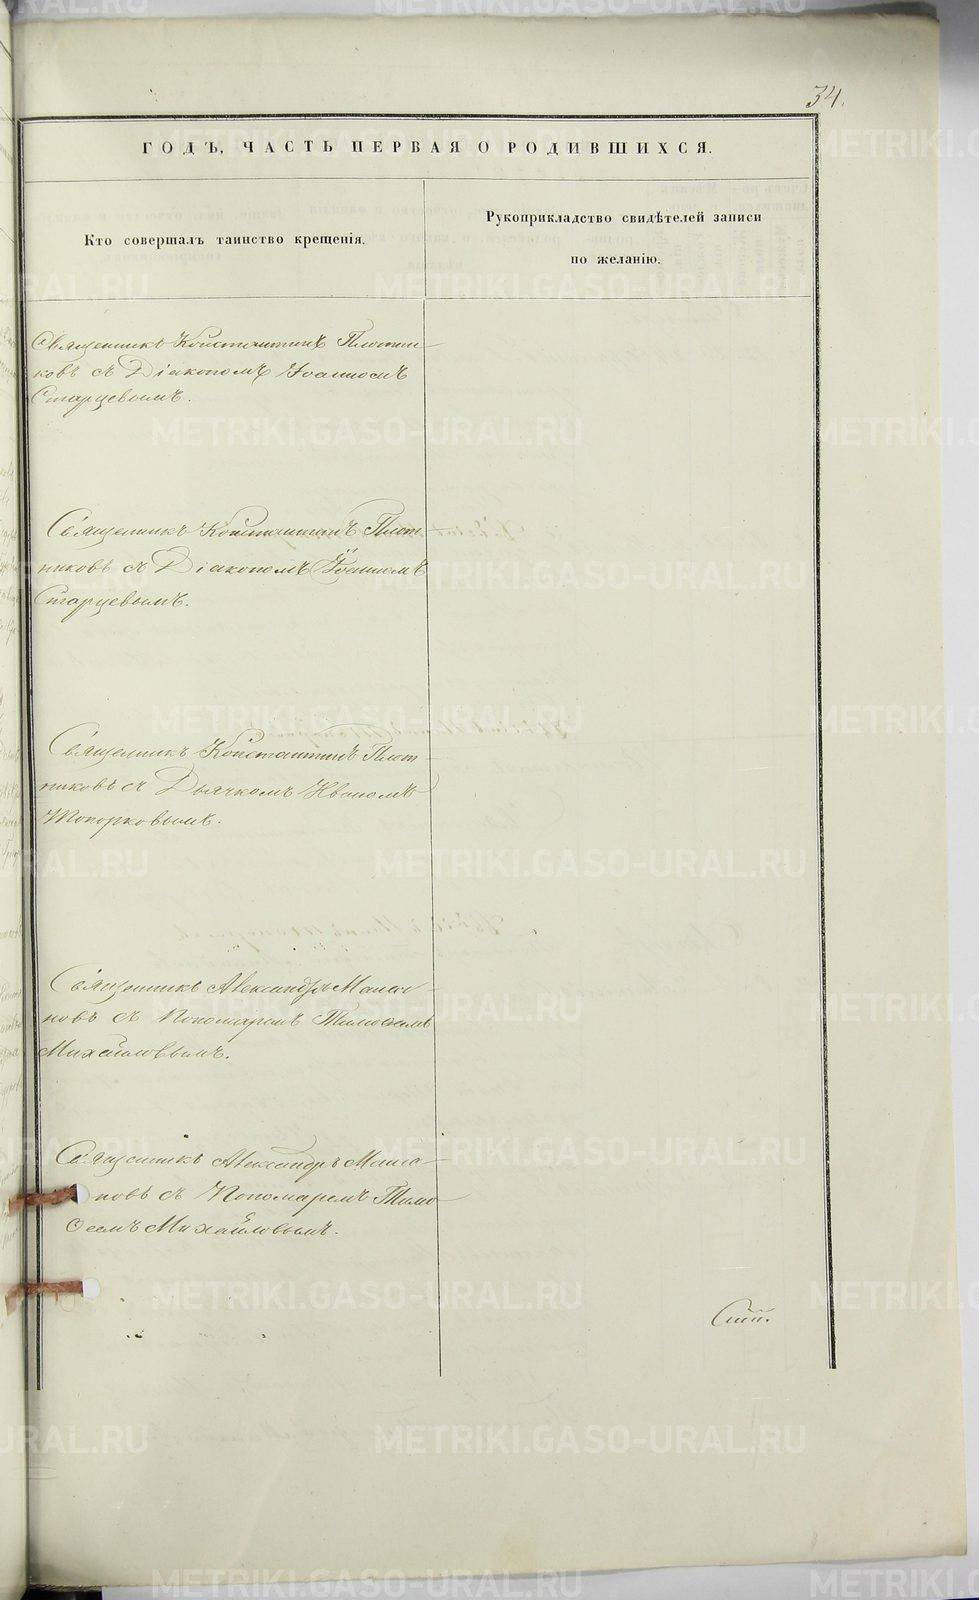 34.
ГОДЪ, ЧАСТЬ ПЕРВАЯ О РОДИВШИХСЯ.
Кто совершалъ таинство крещенія.
Рукоприкладство свидѣтелей записи
по желанію.
Священникъ Константинъ Плотни-
ковъ съ Діакономъ Іоанномъ
Старцевымъ.
Священникъ Константинъ Плот-
никовъ съ Діакономъ Іоанномъ
Старцевымъ.
Священникъ Константинъ Плот-
никовъ съ Дьячкомъ Иваномъ
Топорковымъ.
Священникъ Александръ Мамо-
новъ съ Пономаремъ Тимоѳеемъ
Михайловымъ.
Священникъ Александръ Мамо-
новъ съ Пономаремъ Тимо
ѳеемъ Михайловымъ.
METRIKI.GASO-URAL.RU